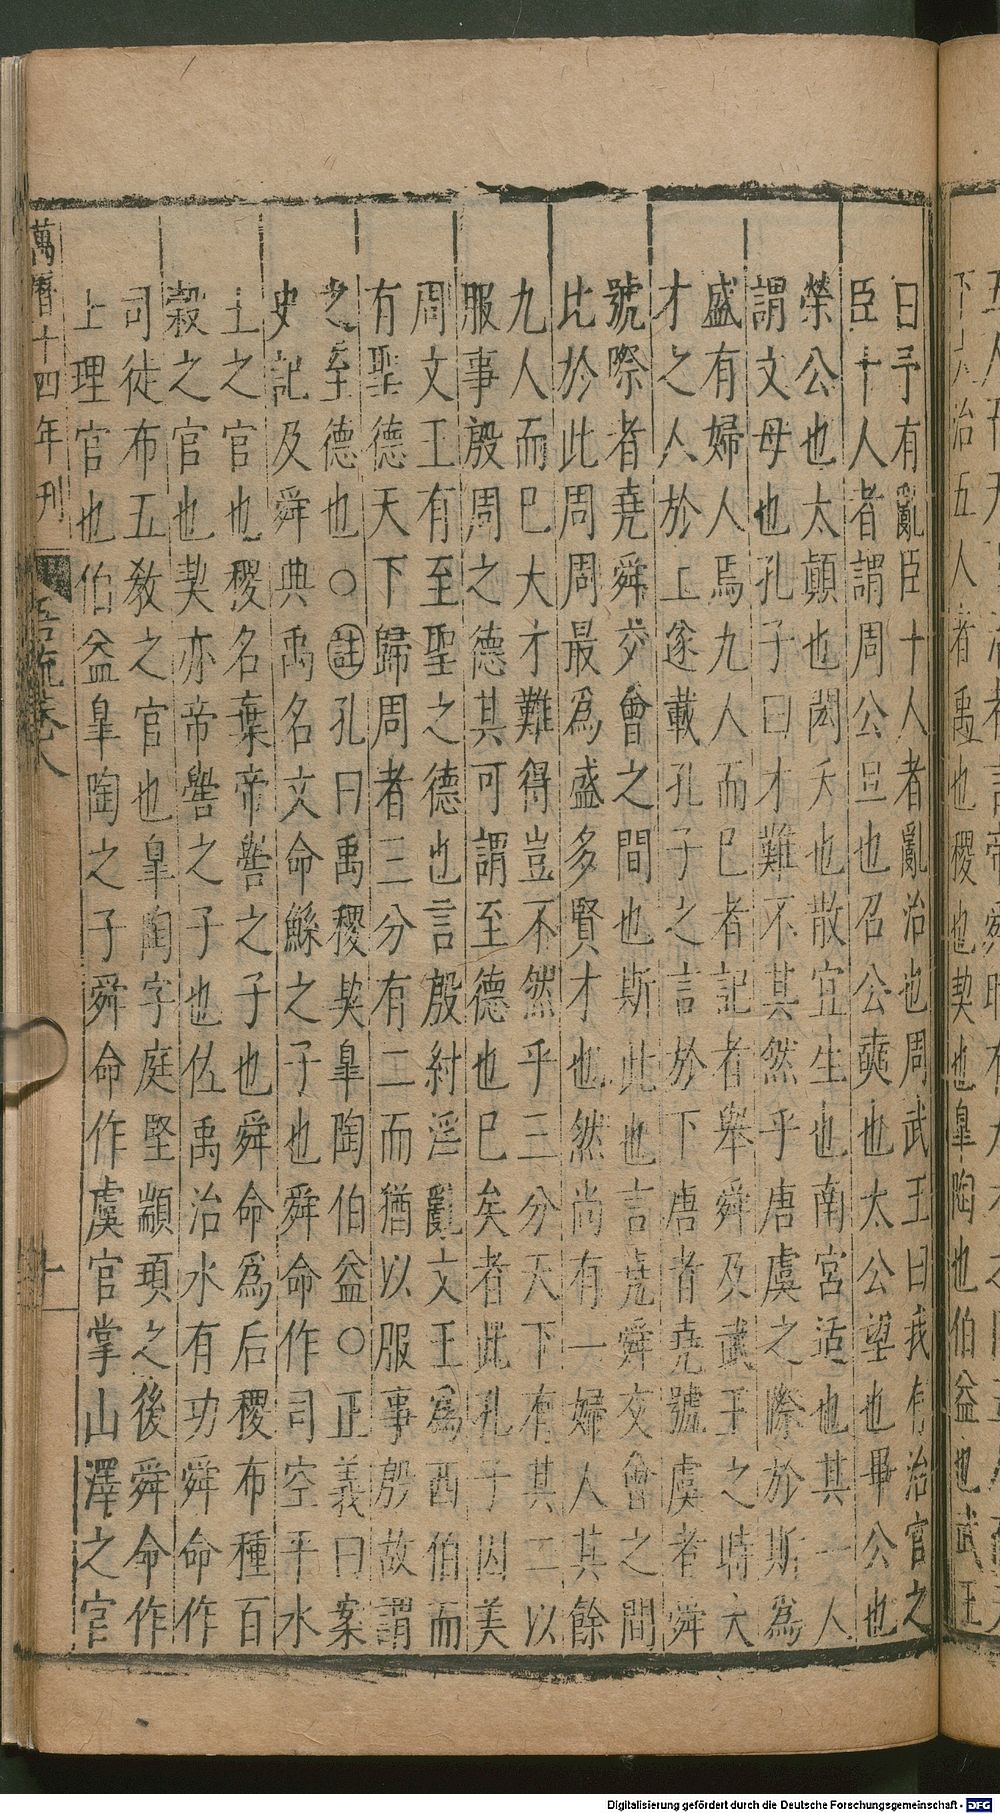 下大治五人者禹也稷也契也臯陶也伯益也武王
曰予有亂臣十人者亂治也周武王曰我有治官之
臣十人者謂周公旦也召公奭也太公望也畢公也
榮公也太顚也閎夭也散宜生也南宮适也其一人
謂文母也孔子曰才難不其然乎唐虞之際於斯爲
盛有婦人焉九人而已者記者舉舜及武王之時大
才之人於上遂載孔子之言於下唐者堯號虞者舜
號際者堯舜交會之間也斯此也言堯舜交會之間
比於此周周最爲盛多賢才也然尚有一婦人其餘
九人而已大才難得豈不然乎三分天下有其二以
服事殷周之德其可謂至德也已矣者此孔子因美
周文王有至聖之德也言殷紂淫亂文王爲西伯而
有聖德天下歸周者三分有二而猶以服事殷故謂
之至德也○註孔曰禹稷契臯陶伯益○正義曰案
史記及舜典禹名文命鯀之子也舜命作司空平水
土之官也稷名棄帝嚳之子也舜命爲后稷布種百
穀之官也契亦帝嚳之子也佐禹治水有功舜命作
司徒布五教之官也臯陶字庭堅顓頊之後舜命作
士理官也伯益臯陶之子舜命作虞官掌山澤之官
萬曆十四年刊 語疏卷八
Digitalisierung gefördert durch die Deutsche Forschungsgemeinschaft - DFG